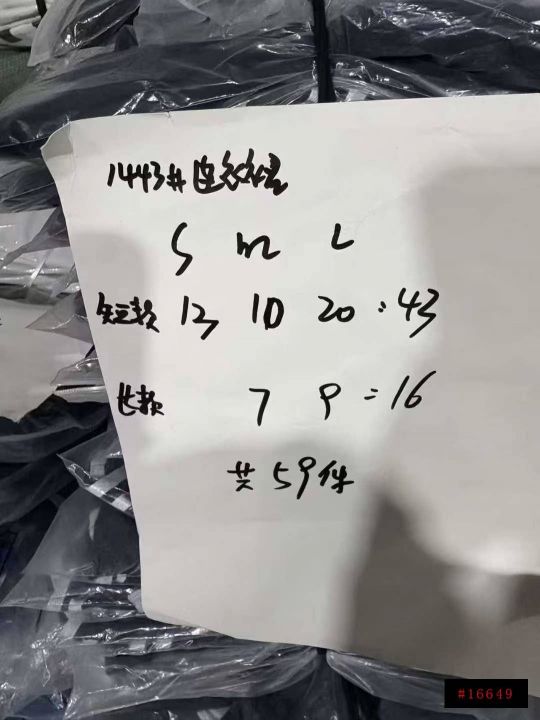 1443# 连衣裙
S m L
短款 13 10 20 = 43
长款 7 9 = 16
共 59 件
#16649